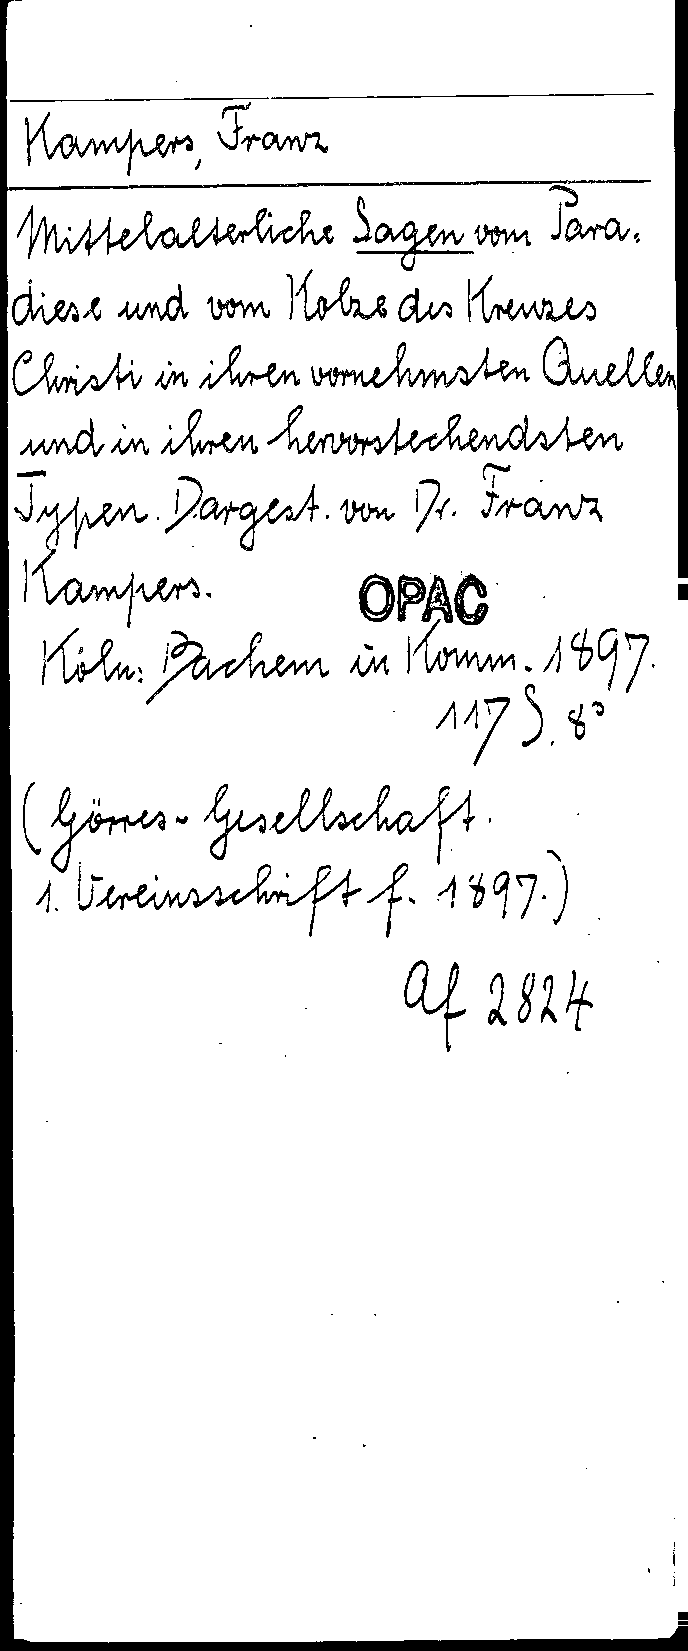 Kampers, Franz
Mittelalterliche Sagen vom Para-
diese und vom Holze des Kreuzes
Christi in ihren vornehmsten Quellen
und in ihren hervorstechendsten
Typen. Dargest. von Dr. Franz
Kampers.
OPAC
Köln: Bachem in Komm. 1897.
117 S. 8°
(Görres-Gesellschaft.
1. Vereinsschrift f. 1897.)
Af 2824